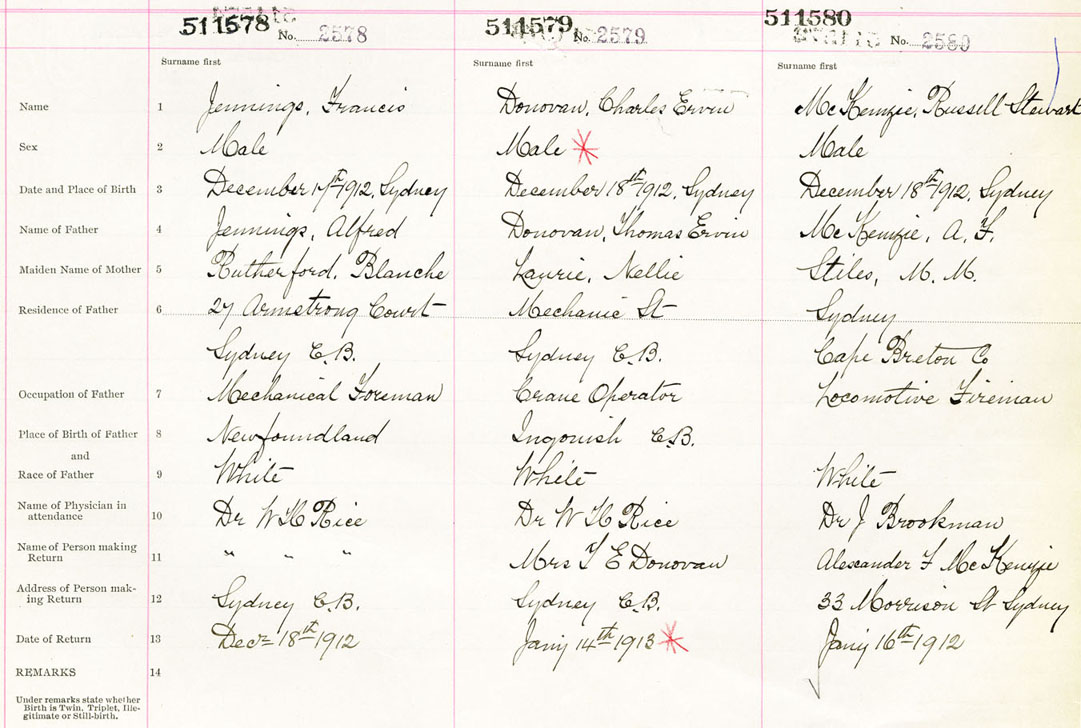 511578 No. 2578
511579 No. 2579
511580 No. 2580
Surname first Surname first Surname first
Name 1 Jennings, Francis Donovan, Charles Ervin McKenzie, Russell Stewart
Sex 2 Male Male Male
Date and Place of Birth 3 December 17th 1912, Sydney December 18th 1912, Sydney December 18th 1912, Sydney
Name of Father 4 Jennings, Alfred Donovan, Thomas Ervin McKenzie, A. F.
Maiden Name of Mother 5 Rutherford, Blanche Laurie, Nellie Stiles, M. M.
Residence of Father 6 27 Armstrong Court Mechanic St Sydney
Sydney C.B. Sydney C.B. Cape Breton Co
Occupation of Father 7 Mechanical Foreman Crane Operator Locomotive Fireman
Place of Birth of Father 8 Newfoundland Ingonish C.B.
and
Race of Father 9 White White White
Name of Physician in
attendance 10 Dr W H Rice Dr W H Rice Dr J Brookman
Name of Person making
Return 11 " " " Mrs T E Donovan Alexander F McKenzie
Address of Person mak-
ing Return 12 Sydney C.B. Sydney C.B. 33 Morrison St Sydney
Date of Return 13 Decr 18th 1912 Jany 14th 1913 Jany 16th 1912
REMARKS 14
Under remarks state whether
Birth is Twin, Triplet, Ille-
gitimate or Still-birth.